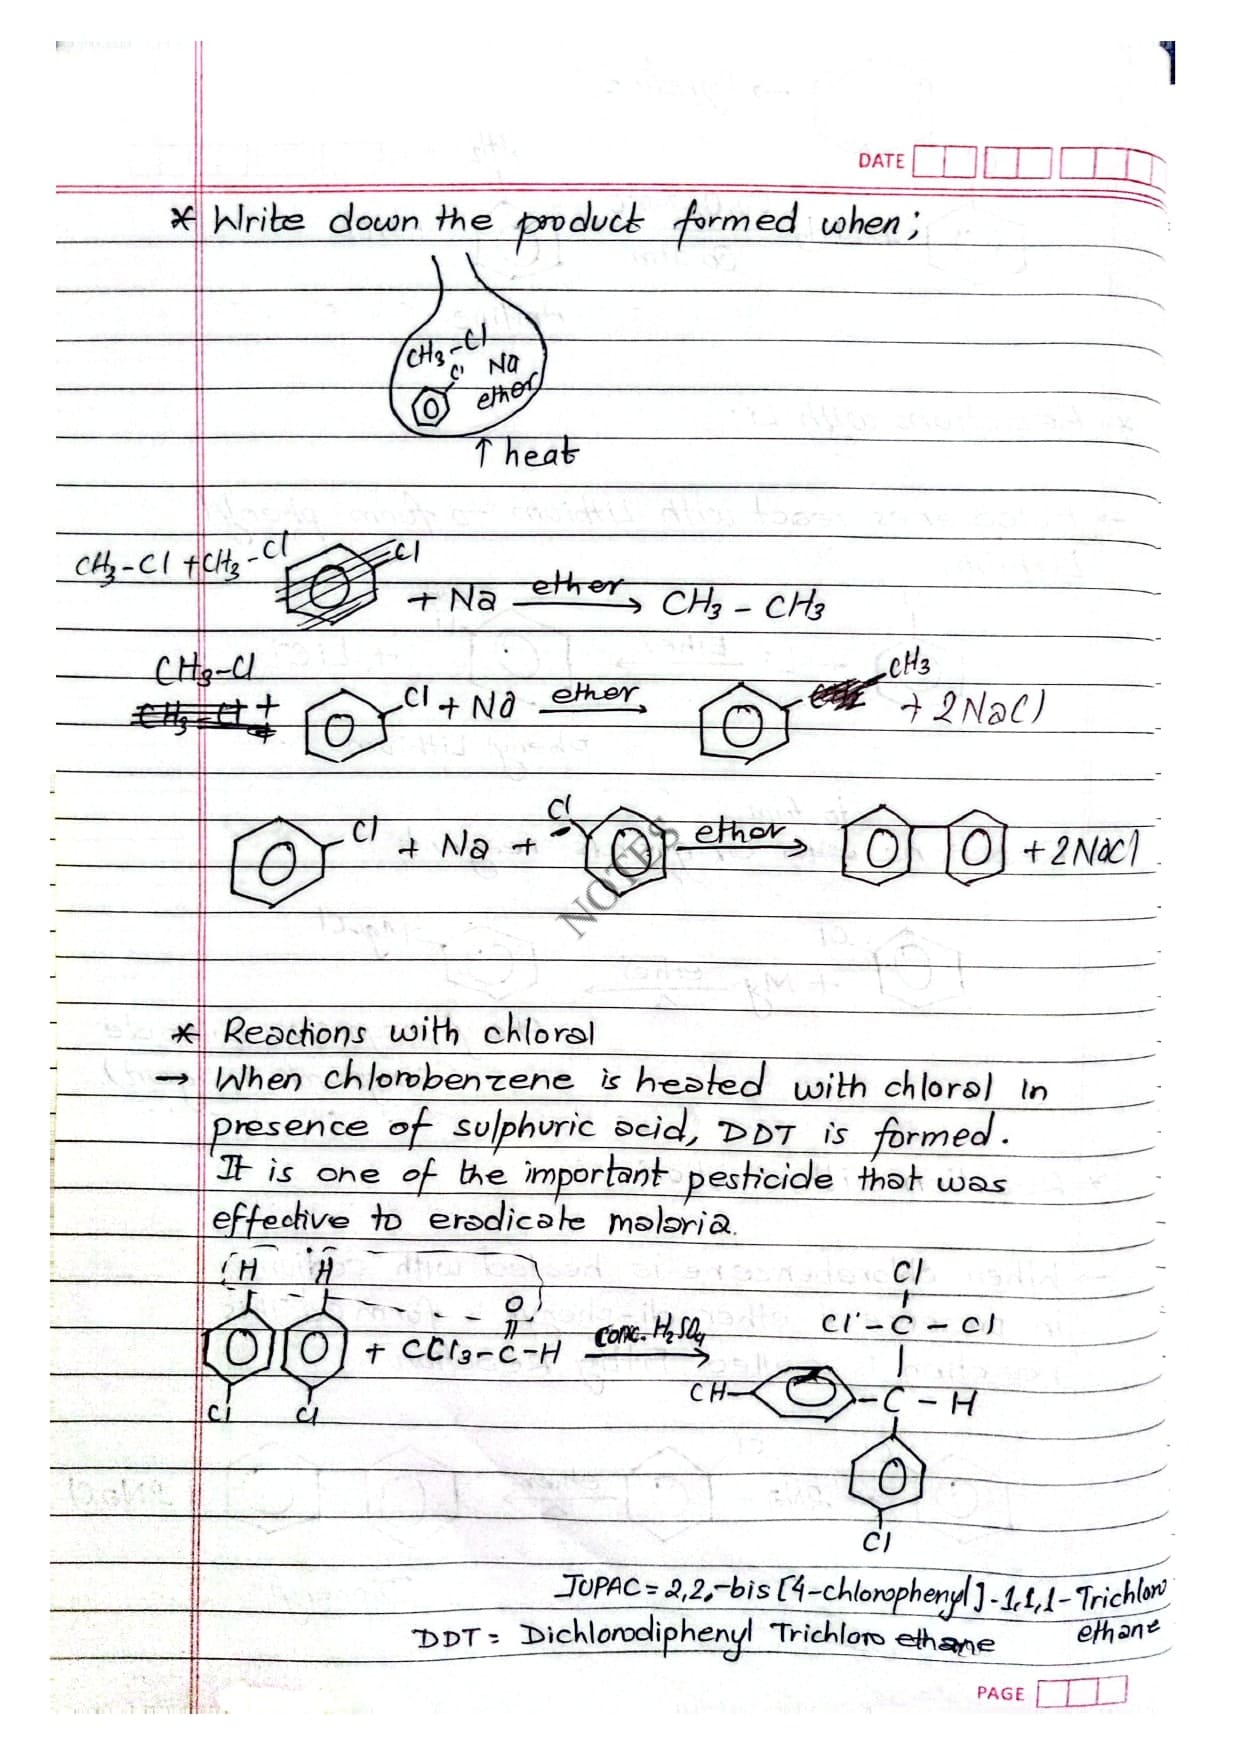 DATE
* Write down the product formed when;
CH3-Cl
Cl Na
ether
↑ heat
CH3-Cl + CH3-Cl Cl + Na ether → CH3 - CH3
CH3-Cl
CH3-Cl + Cl + Na ether → CH3 + 2NaCl
Cl + Na + Cl ether → + 2NaCl
NOTES
* Reactions with chloral
→ When chlorobenzene is heated with chloral in
presence of sulphuric acid, DDT is formed.
It is one of the important pesticide that was
effective to eradicate malaria.
H H
O
Cl
Cl - C - Cl
+ CCl3-C-H conc. H2SO4 →
CH C - H
Cl Cl
Cl
IUPAC = 2,2,-bis [4-chlorophenyl] - 1,1,1 - Trichloro
ethane
DDT = Dichlorodiphenyl Trichloro ethane
PAGE